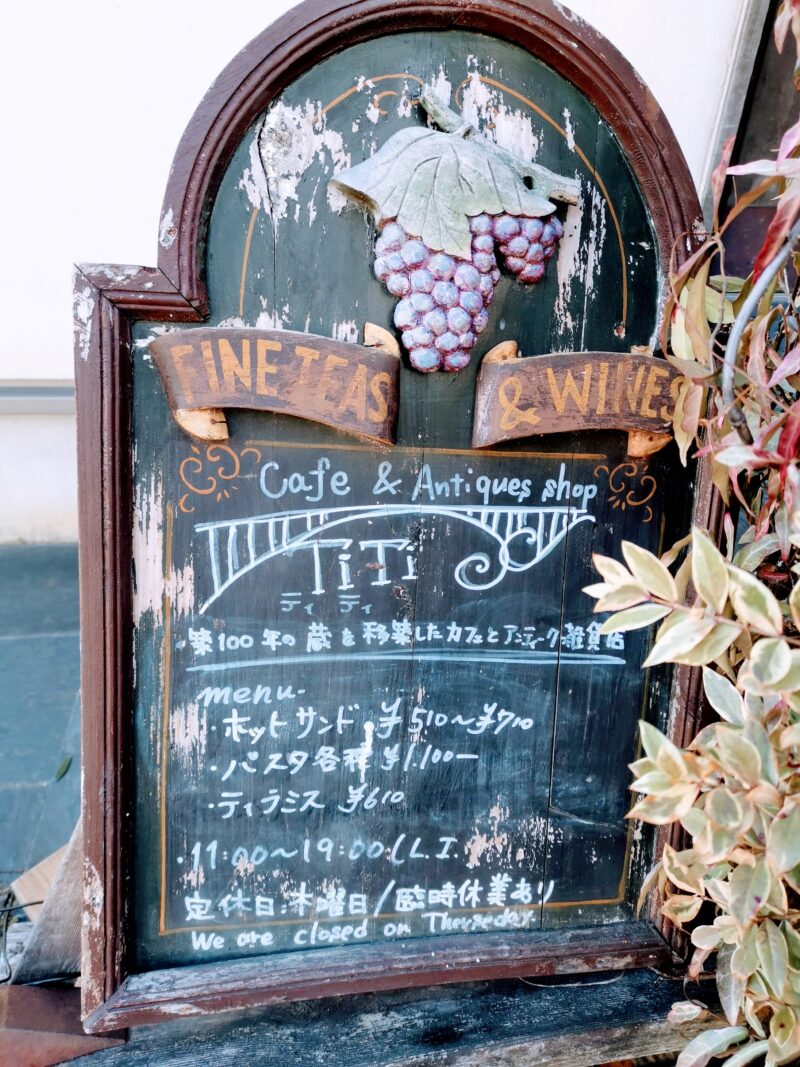 FINE TEAS & WINES
Cafe & Antiques shop
TiTi
ティ ティ
・築100年の蔵を移築したカフェとアンティーク雑貨店
menu-
・ホットサンド ¥510〜¥710
・パスタ各種 ¥1.100-
・ティラミス ¥610
・11:00〜19:00(L.
定休日:木曜日/臨時休業あり
We are closed on Thurseday.